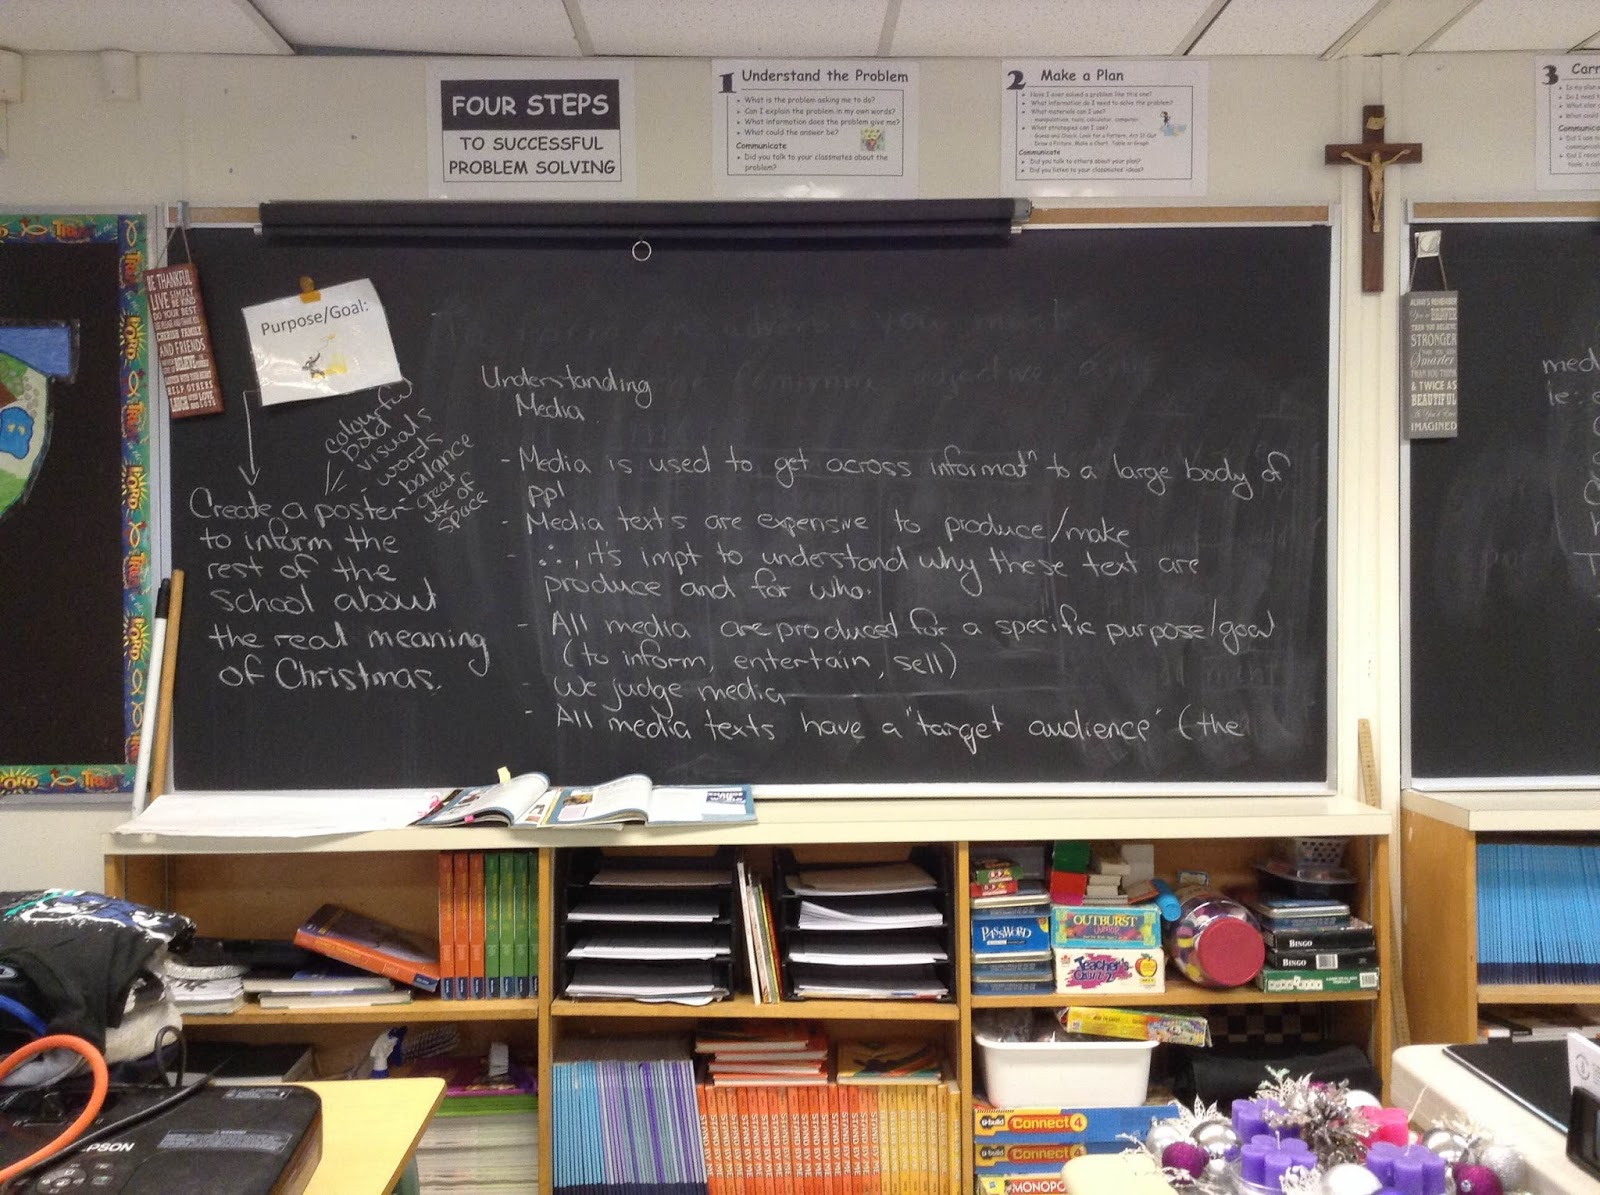 FOUR STEPS
TO SUCCESSFUL
PROBLEM SOLVING
1 Understand the Problem
What is the problem asking me to do?
Can I explain the problem in my own words?
What information does the problem give me?
What could the answer be?
Communicate
Did you talk to your classmates about the
problem?
2 Make a Plan
Have I ever solved a problem like this one?
What information do I need to solve the problem?
What materials can I use?
manipulatives, tools, calculator, computer
What strategies can I use?
Guess and Check, Look for a Pattern, Act It Out
Draw a Picture, Make a Chart, Table or Graph
Communicate
Did you talk to others about your plan?
Did you listen to your classmates ideas?
3
BE THANKFUL
LIVE SIMPLY
BE KIND
DO YOUR BEST
CHERISH FAMILY
AND FRIENDS
HELP OTHERS
Purpose/Goal:
colourful
bold
visuals
- words
- balance
- great
use of
space
Create a poster
to inform the
rest of the
school about
the real meaning
of Christmas.
Understanding
Media
- Media is used to get across informatⁿ to a large body of
ppl
- Media texts are expensive to produce/make
- ∴, it's impt to understand why these text are
produce and for who.
- All media are produced for a specific purpose/goal
(to inform, entertain, sell)
- We judge media
- All media texts have a "target audience" (the
ALWAYS REMEMBER
You're BRAVER
THAN YOU BELIEVE
STRONGER
THAN YOU SEEM
Smarter
THAN YOU THINK
& TWICE AS
BEAUTIFUL
As You'd Ever
IMAGINED
med
ie:
PASSWORD
OUTBURST
JUNIOR
Teacher's
Quiz
BINGO
BINGO
STAND BY ME
Connect 4
Connect 4
MONOPO
EPSON